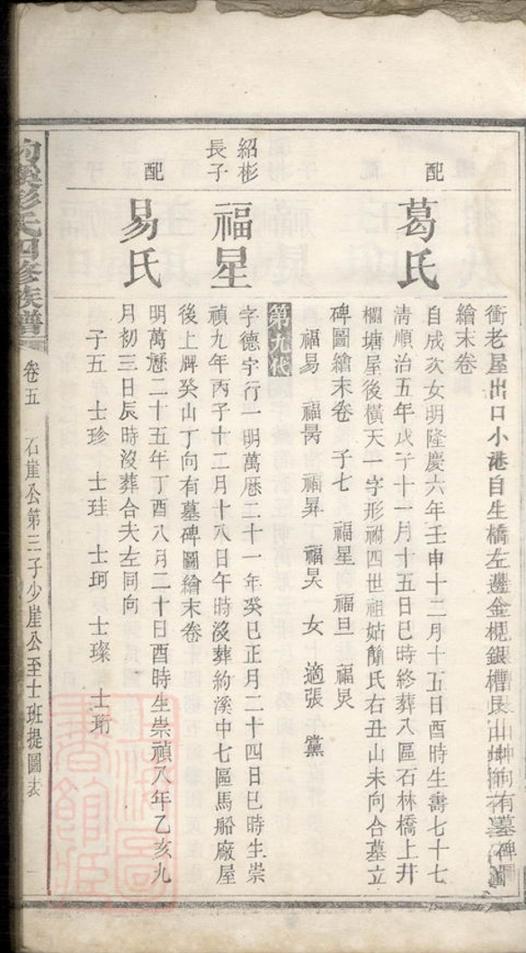 衝老屋出口小港自生橋左邊金槐銀槽艮山坤向有墓碑圖
繪末卷
配
葛氏
自成次女明隆慶六年壬申十二月十五日酉時生壽七十七
清順治五年戊子十一月十五日巳時終葬八區石林橋上井
欄塘屋後橫天一字形祔四世祖姑顏氏右丑山未向合墓立
碑圖繪末卷 子七 福星 福旦 福炅
福易 福昺 福昇 福昊 女 適張 黨
第九代
紹彬
長子
福星
字德宇行一明萬厯二十一年癸巳正月二十四日巳時生崇
禎九年丙子十二月十八日午時沒葬約溪中七區馬船廠屋
後上牌癸山丁向有墓碑圖繪末卷
配
易氏
明萬厯二十五年丁酉八月二十日酉時生崇禎八年乙亥九
月初三日辰時沒葬合夫左同向
子五 士珍 士珪 士珂 士璨 士珩
約溪彭氏四修族譜
卷五 石崖公第三子少崖公至士班提圖表 一